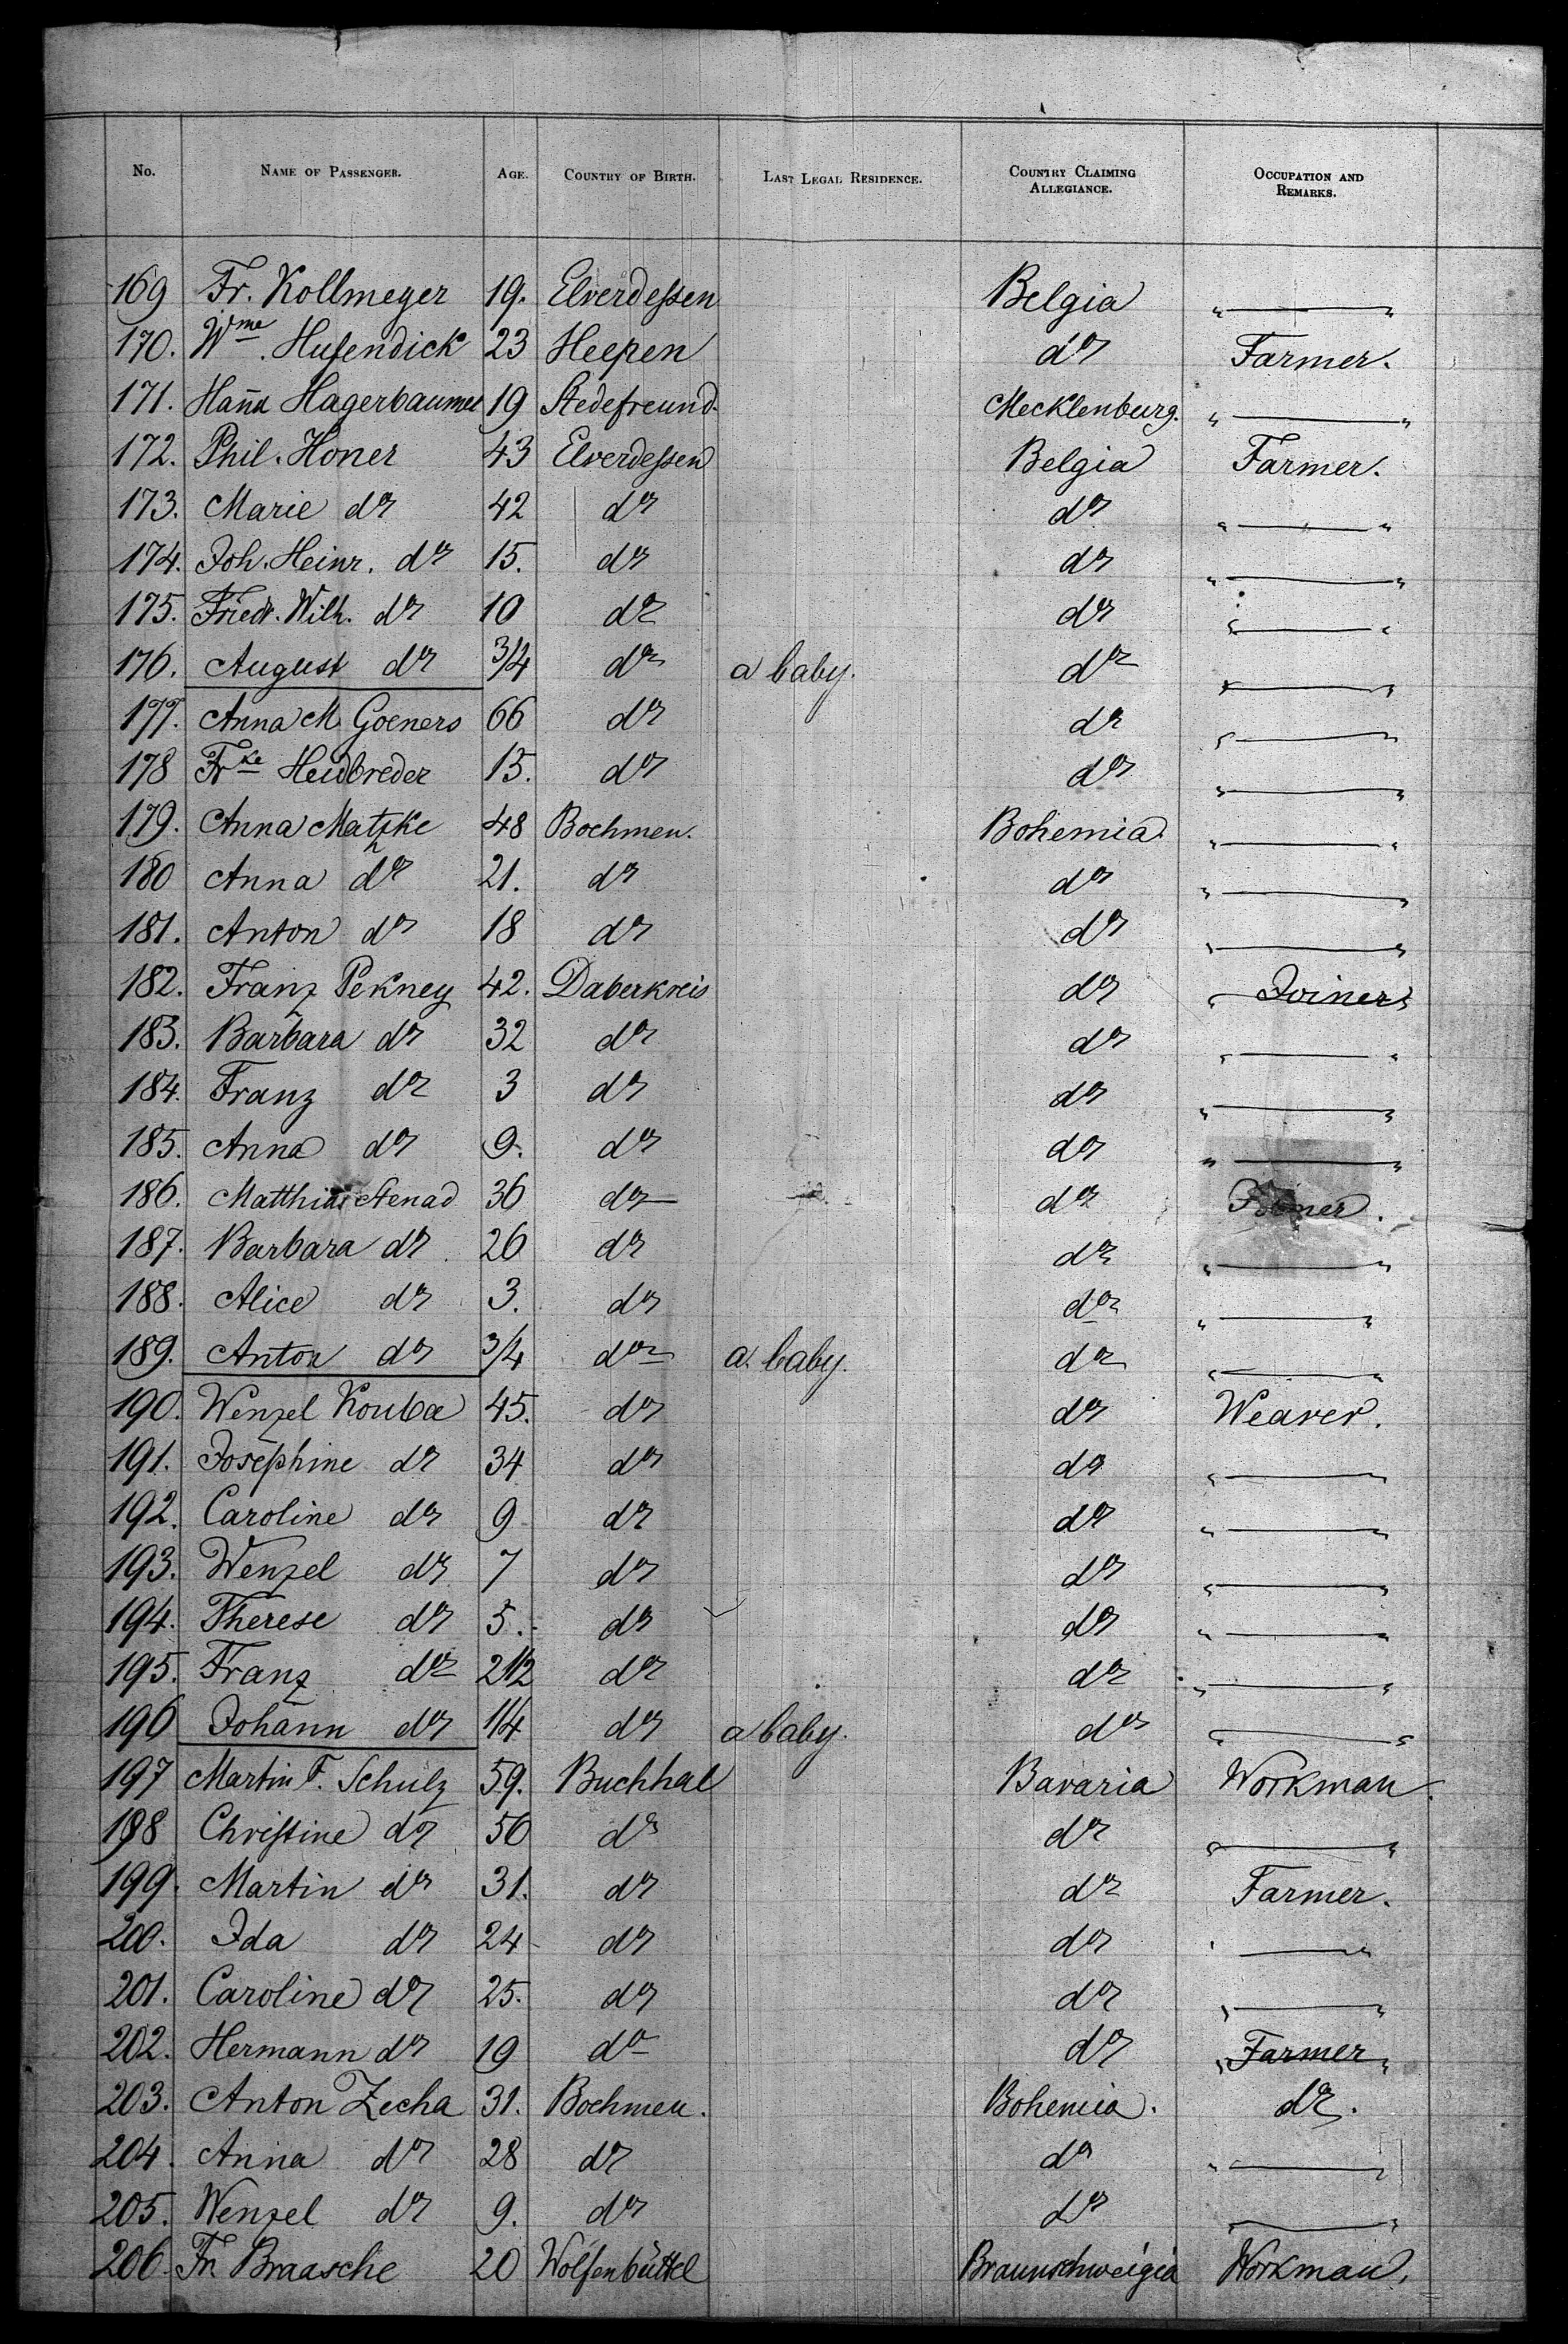 No. NAME OF PASSENGER. AGE. COUNTRY OF BIRTH. LAST LEGAL RESIDENCE. COUNTRY CLAIMING ALLEGIANCE. OCCUPATION AND REMARKS.
169 Fr. Kollmeyer 19. Elverdessen Belgia " — "
170. Wme. Hufendick 23 Heepen do Farmer.
171. Hanna Hagerbaumer 19 Stedefreund. Mecklenburg. " — "
172. Phil. Honer 43 Elverdessen Belgia Farmer.
173. Marie do 42 do do " — "
174. Joh. Heinr. do 15. do do " — "
175. Friedr. Wilh. do 10 do do " — "
176. August do 3/4 do a baby. do " — "
177. Anna M. Goeners 66 do do " — "
178 Frke Heidbreder 15. do do " — "
179. Anna Matzke 48 Boehmen. Bohemia. " — "
180 Anna do 21. do do " — "
181. Anton do 18 do do " — "
182. Franz Pekney 42. Daberkreis do " Joiner "
183. Barbara do 32 do do " — "
184. Franz do 3 do do " — "
185. Anna do 9. do do " — "
186. Matthias Stenad 36 do do
187. Barbara do 26 do do " — "
188. Alice do 3. do do " — "
189. Anton do 3/4 do a baby. do " — "
190. Wenzel Kouba 45. do do Weaver.
191. Josephine do 34 do do " — "
192. Caroline do 9 do do " — "
193. Wenzel do 7 do do " — "
194. Therese do 5. do do " — "
195. Franz do 2 1/2 do do " — "
196 Johann do 1/4 do a baby. do " — "
197 Martin F. Schulz 59. Buchhal Bavaria Workman.
198 Christine do 56 do do " — "
199. Martin do 31. do do Farmer.
200. Ida do 24 do do " — "
201. Caroline do 25. do do " — "
202. Hermann do 19 do do " Farmer "
203. Anton Zecha 31. Boehmen. Bohemia. do.
204. Anna do 28 do do " — "
205. Wenzel do 9. do do " — "
206. Fr. Braasche 20 Wolfenbüttel Braunschweigia Workman.